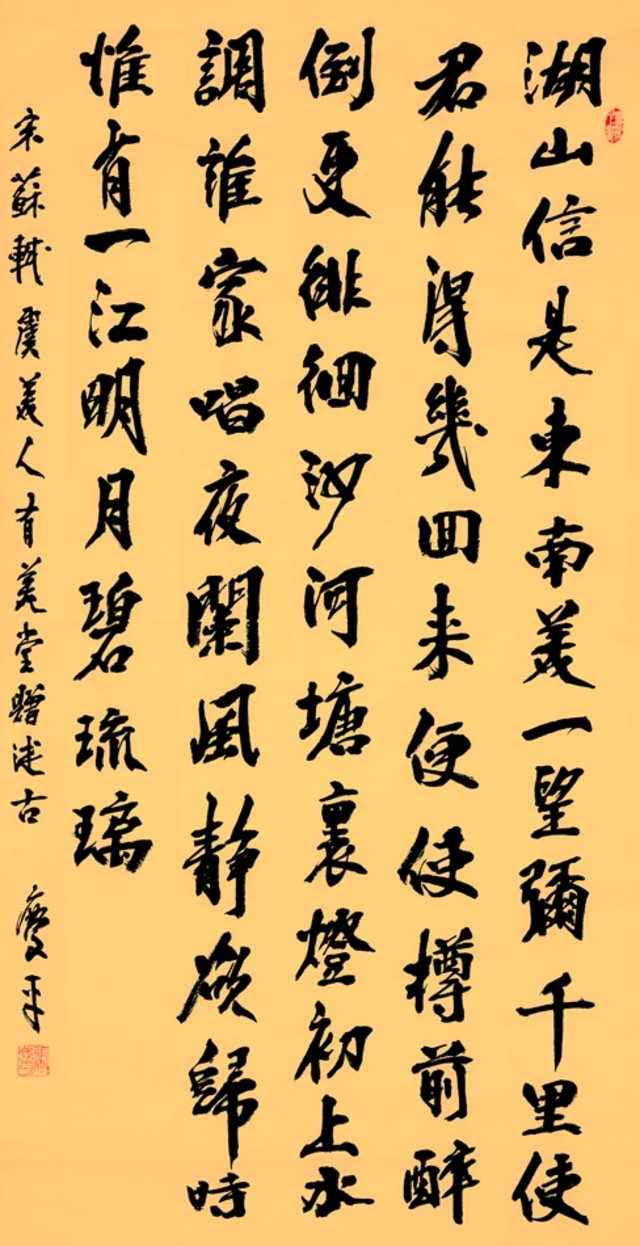 湖山信是東南美一望彌千里使
君能得幾回来便使樽前醉
倒更徘徊沙河塘裏燈初上水
調誰家唱夜闌風靜欲歸時
惟有一江明月碧琉璃
宋蘇軾虞美人有美堂贈述古 慶平